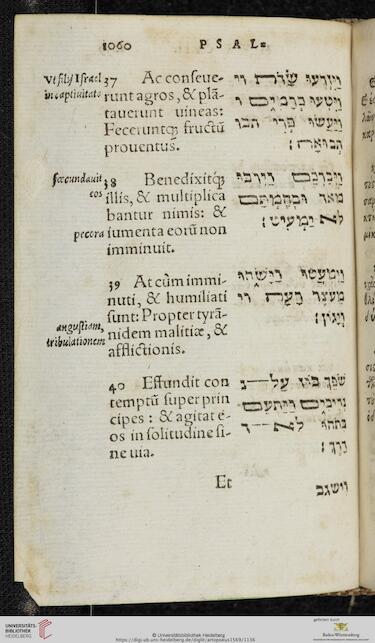 1060 PSAL.
Vt filij Israel
in captiuitate
37 Ac conseue-
runt agros, & plã-
tauerunt uineas:
Feceruntq; fructũ
prouentus.
ויזרעו שדות וי
ויטעו כרמים ו
ויעשו פרי תבו
תבואה:
fœcundauit
eos
pecora
38 Benedixitq;
illis, & multiplica
bantur nimis: &
iumenta eorũ non
imminuit.
ויברכם וירבו
מאד ובהמתם
לא ימעיט:
angustiam,
tribulationem
39 At cùm immi-
nuti, & humiliati
sunt: Propter tyrã-
nidem malitiæ, &
afflictionis.
וימעטו וישחו
מעצר רעה וי
ויגון:
40 Effundit con
temptũ super prin
cipes: & agitat e-
os in solitudine si-
ne uia.
שפך בוז על נ
נדיבים ויתעם
בתהו לא ד
דרך:
Et
וישגב
UNIVERSITÄTS-
BIBLIOTHEK
HEIDELBERG
© Universitätsbibliothek Heidelberg
gefördert durch
Baden-Württemberg